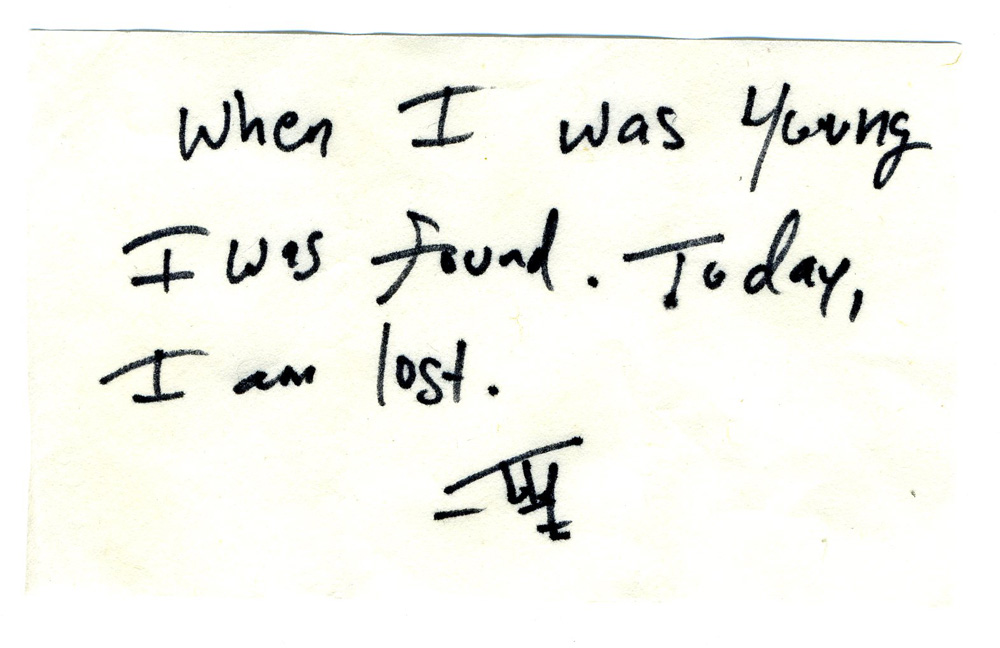 When I was Young
I was found. Today,
I am lost.